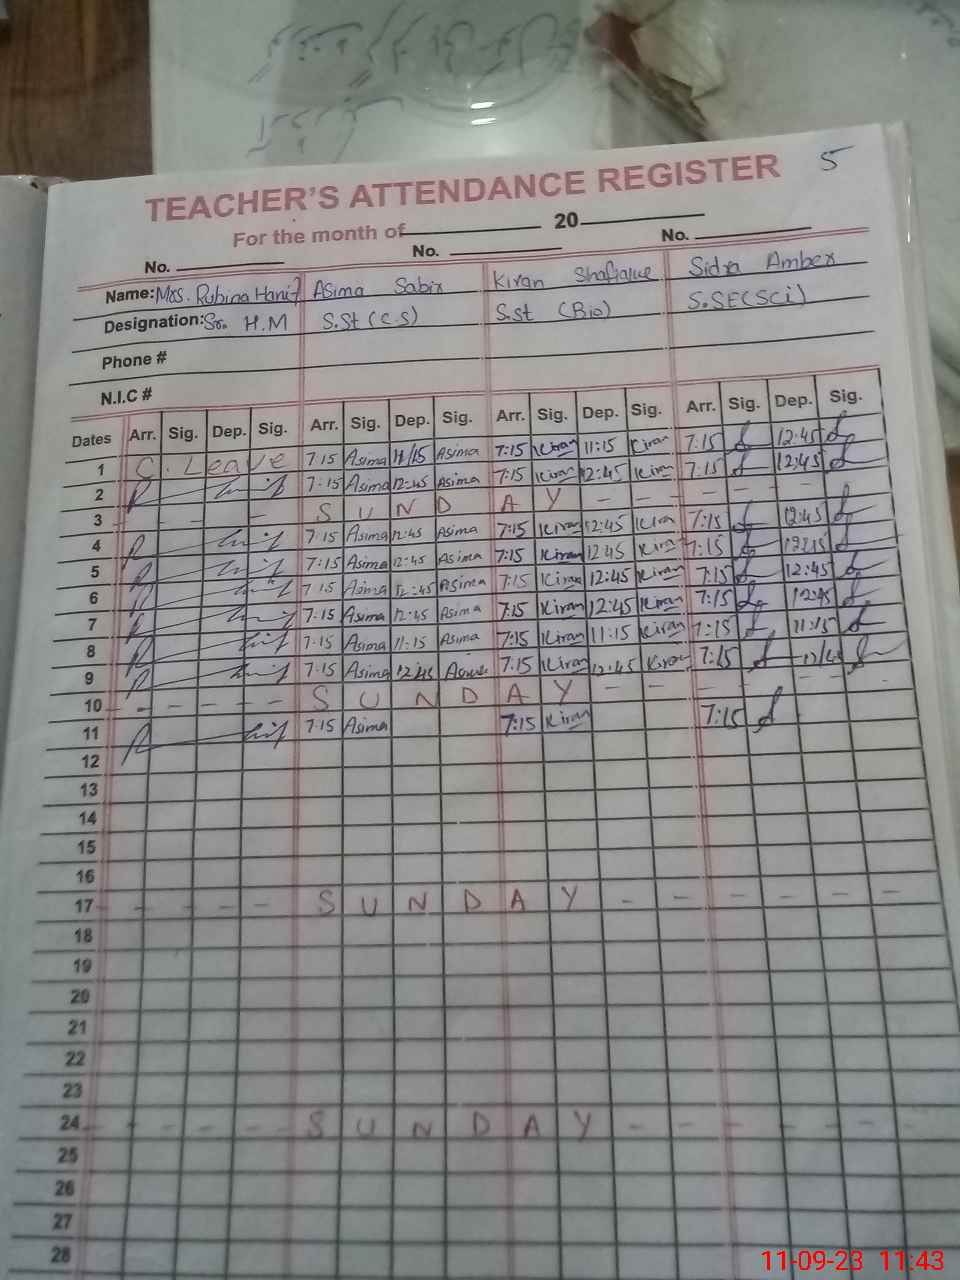 5
TEACHER'S ATTENDANCE REGISTER
For the month of 20
No. No. No.
Name: Mrs. Rubina Hanif Asima Sabir Kiran Shafique Sidra Amber
Designation: Sr. H.M S.St (C.S) S.st (Bio) S.SE(SCi)
Phone #
N.I.C #
Dates Arr. Sig. Dep. Sig. Arr. Sig. Dep. Sig. Arr. Sig. Dep. Sig. Arr. Sig. Dep. Sig.
1 C. Leave 7:15 Asima 11/15 Asima 7:15 Kiran 11:15 Kiran 7:15 12:45
2 7:15 Asima 12:45 Asima 7:15 Kiran 12:45 Kiran 7:15 12:45
3 - - - - S U N D A Y - - - - - -
4 7:15 Asima 12:45 Asima 7:15 Kiran 12:45 Kiran 7:15 12:45
5 7:15 Asima 12:45 Asima 7:15 Kiran 12:45 Kiran 7:15
6 7:15 Asima 12:45 Asima 7:15 Kiran 12:45 Kiran 7:15 12:45
7 7:15 Asima 12:45 Asima 7:15 Kiran 12:45 Kiran 7:15 12:45
8 7:15 Asima 11:15 Asima 7:15 Kiran 11:15 Kiran 7:15 11:15
9 7:15 Asima 12:45 7:15 Kiran 12:45 Kiran 7:15
10 - - - - S U N D A Y - - - - - -
11 7:15 Asima 7:15 Kiran 7:15
12
13
14
15
16
17 - - - - S U N D A Y - - - - - -
18
19
20
21
22
23
24 - - - - S U N D A Y - - - - - -
25
26
27
28
11-09-23 11:43